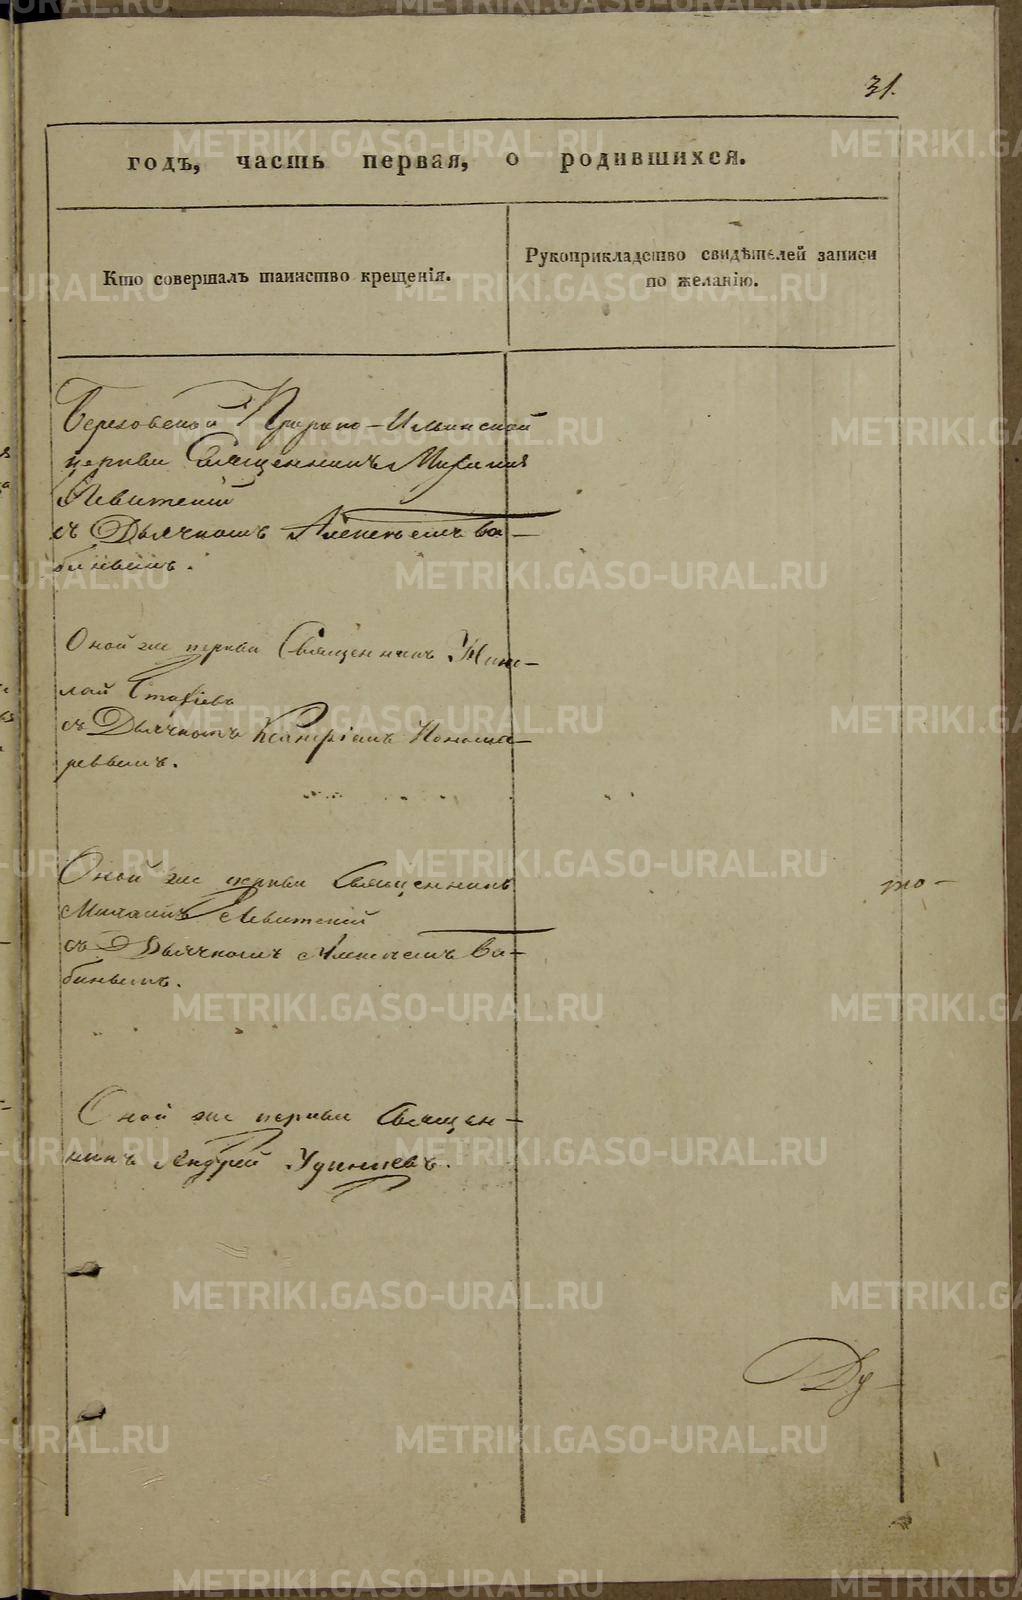 31.
годъ, часть первая, о родившихся.
Кто совершалъ таинство крещенія.
Рукоприкладство свидѣтелей записи
по желанію.
Березовской Пророко-Ильинской
церкви Священникъ Михаилъ
Левитскій
съ Дьячкомъ Алексѣемъ Ба-
бинымъ.
Оной же церкви Священникъ Нико-
лай Стафіевъ
съ Дьячкомъ Понома-
ревымъ.
Оной же церкви Священникъ
Михаилъ Левитскій
съ Дьячкомъ Алексѣемъ Ба-
бинымъ.
то-
Оной же церкви Священ-
никъ Андрей Удинцевъ.
Ду-
METRIKI.GASO-URAL.RU